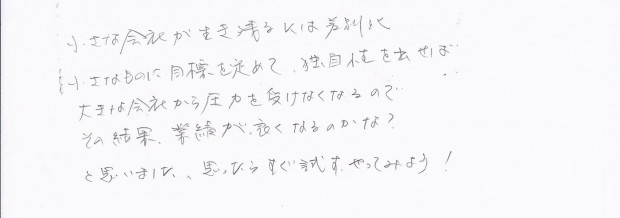 小さな会社が生き残るには差別化
小さなものに目標を定めて、独自性を出せば
大きな会社から圧力を受けなくなるので
その結果、業績が良くなるのかな?
と思いました、思ったらすぐ試す、やってみよう!